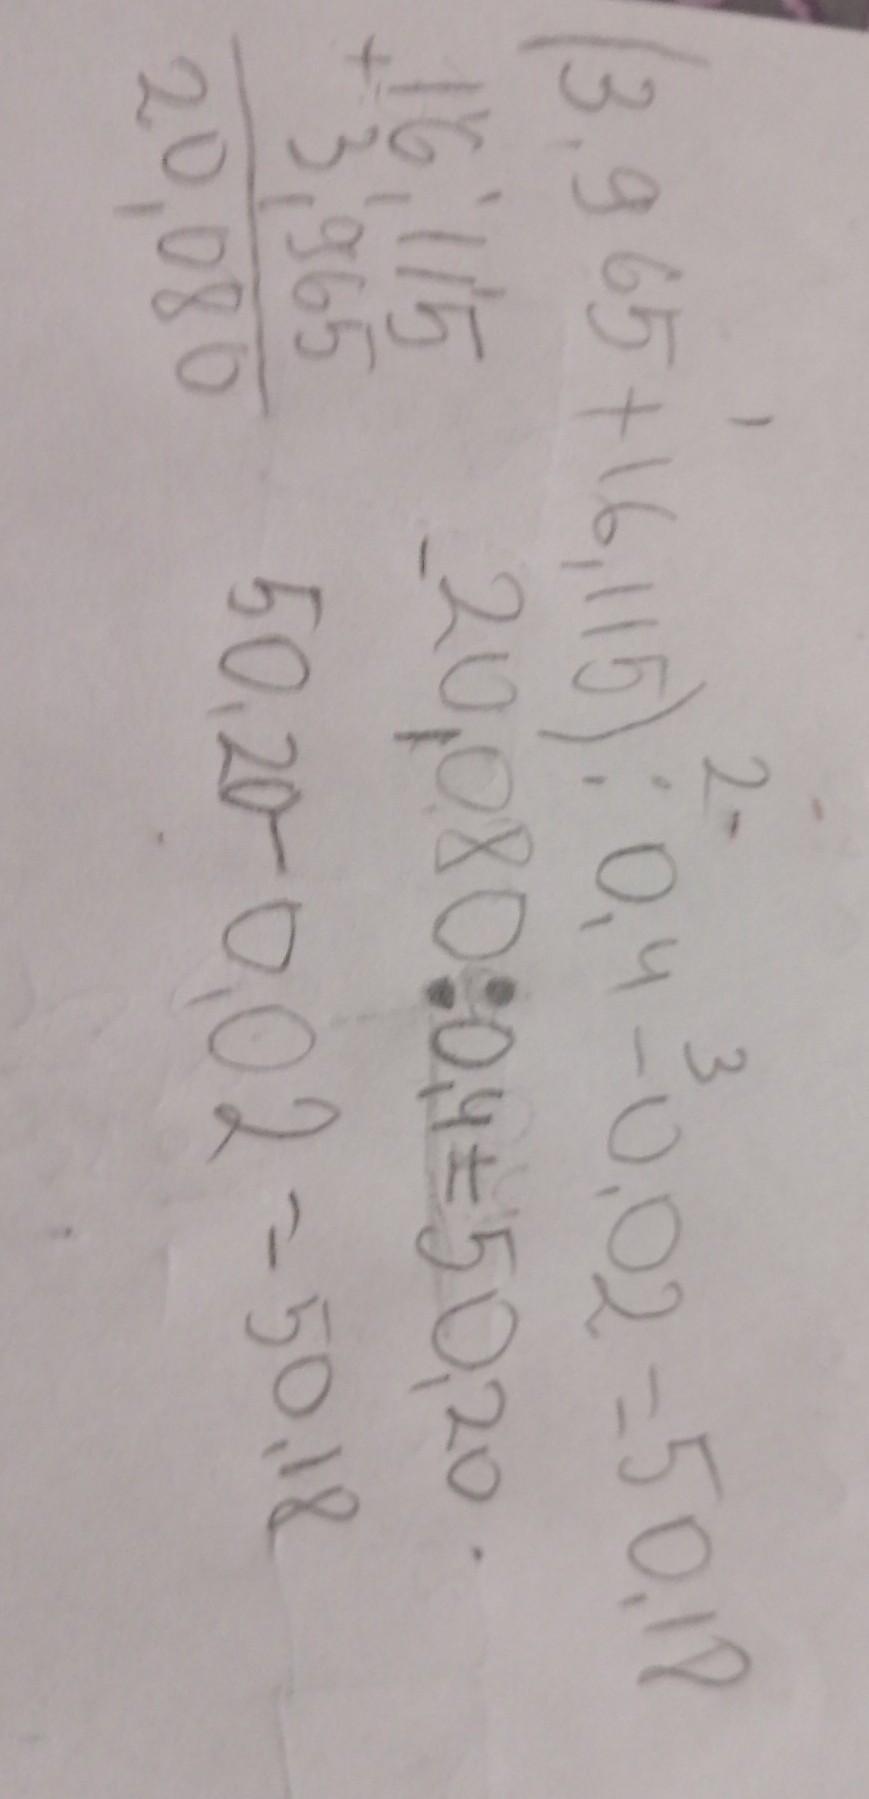 1 2 3
(3,965+16,115):0,4-0,02=50,18
16,115
+ 3,965
20,080
-20,080:0,4=50,20.
50,20-0,02=50,18